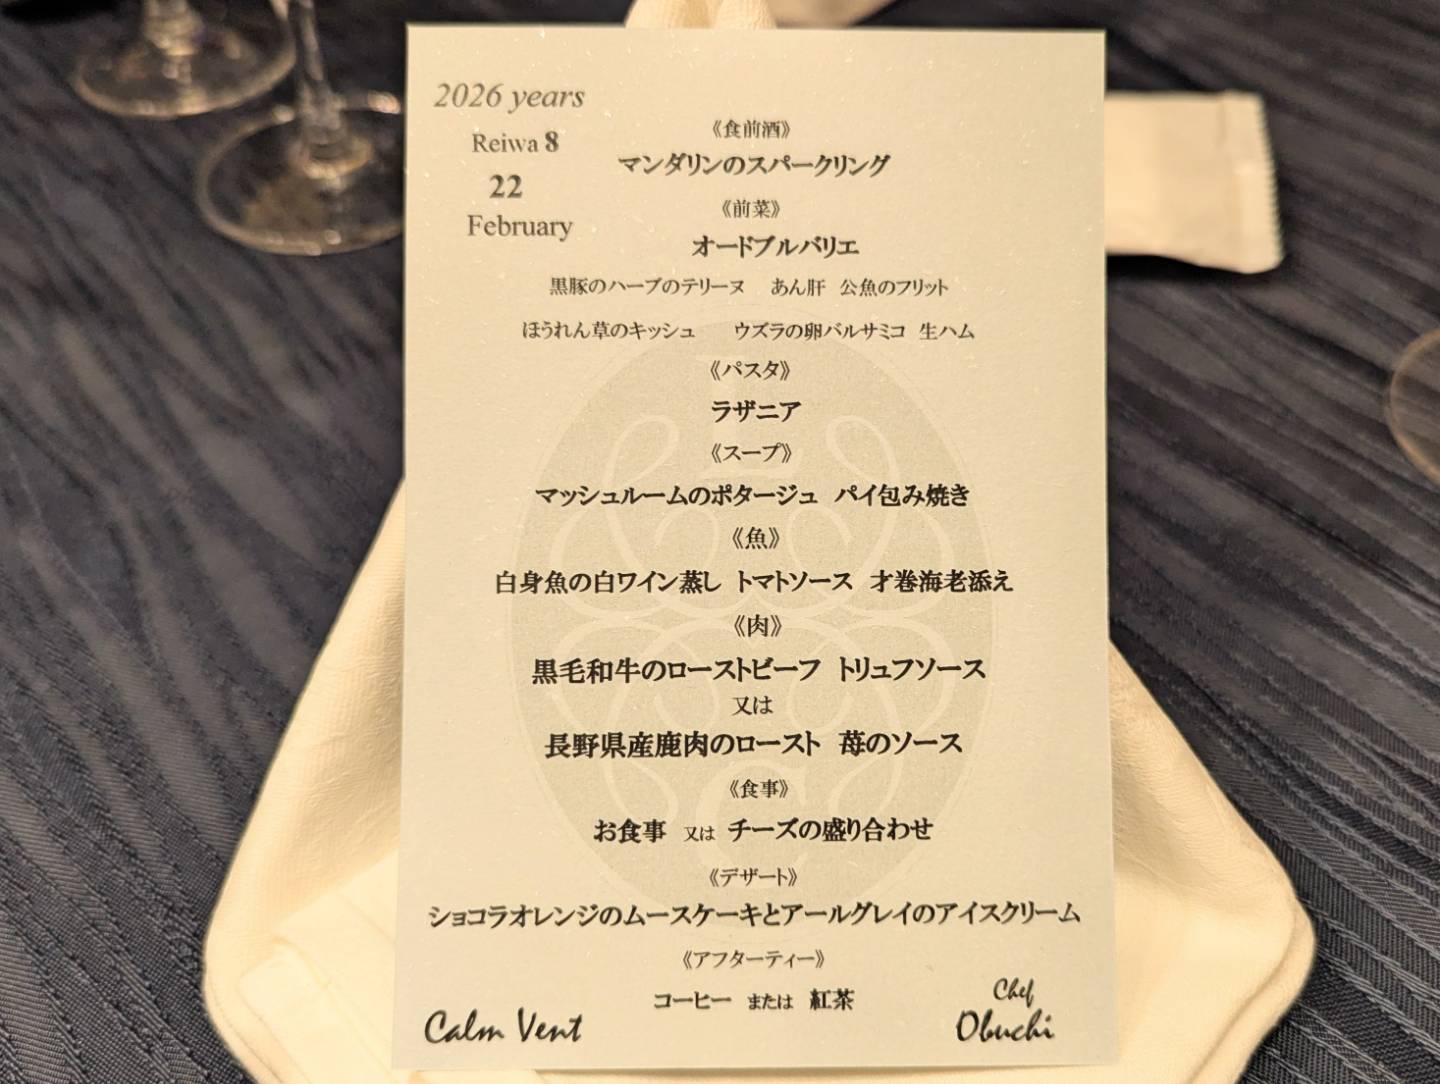 2026 years
Reiwa 8
22
February
《食前酒》
マンダリンのスパークリング
《前菜》
オードブルバリエ
黒豚のハーブのテリーヌ　あん肝　公魚のフリット
ほうれん草のキッシュ　ウズラの卵バルサミコ　生ハム
《パスタ》
ラザニア
《スープ》
マッシュルームのポタージュ　パイ包み焼き
《魚》
白身魚の白ワイン蒸し　トマトソース　才巻海老添え
《肉》
黒毛和牛のローストビーフ　トリュフソース
又は
長野県産鹿肉のロースト　苺のソース
《食事》
お食事　又は　チーズの盛り合わせ
《デザート》
ショコラオレンジのムースケーキとアールグレイのアイスクリーム
《アフターティー》
コーヒー　または　紅茶
Calm Vent
Chef
Obuchi